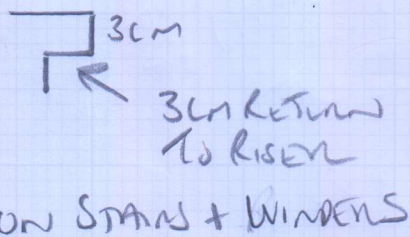 3CM
3CM RETURN
TO RISER
ON STAIRS + WINDERS